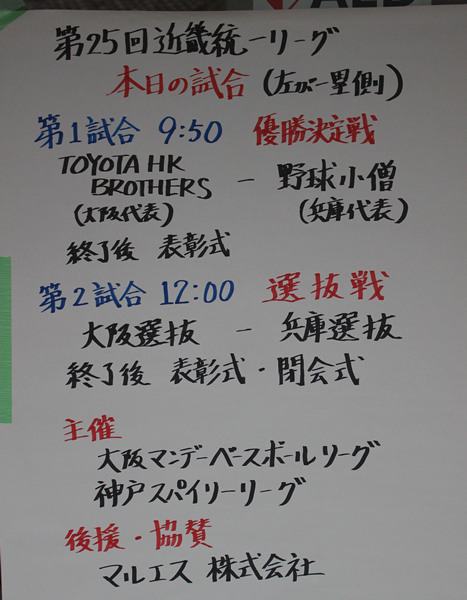 第25回近畿統一リーグ
本日の試合(左が一塁側)
第1試合 9:50 優勝決定戦
TOYOTA HK
BROTHERS - 野球小僧
(大阪代表) (兵庫代表)
終了後 表彰式
第2試合 12:00 選抜戦
大阪選抜 - 兵庫選抜
終了後 表彰式・閉会式
主催
大阪マンデーベースボールリーグ
神戸スパイリーリーグ
後援・協賛
マルエス 株式会社